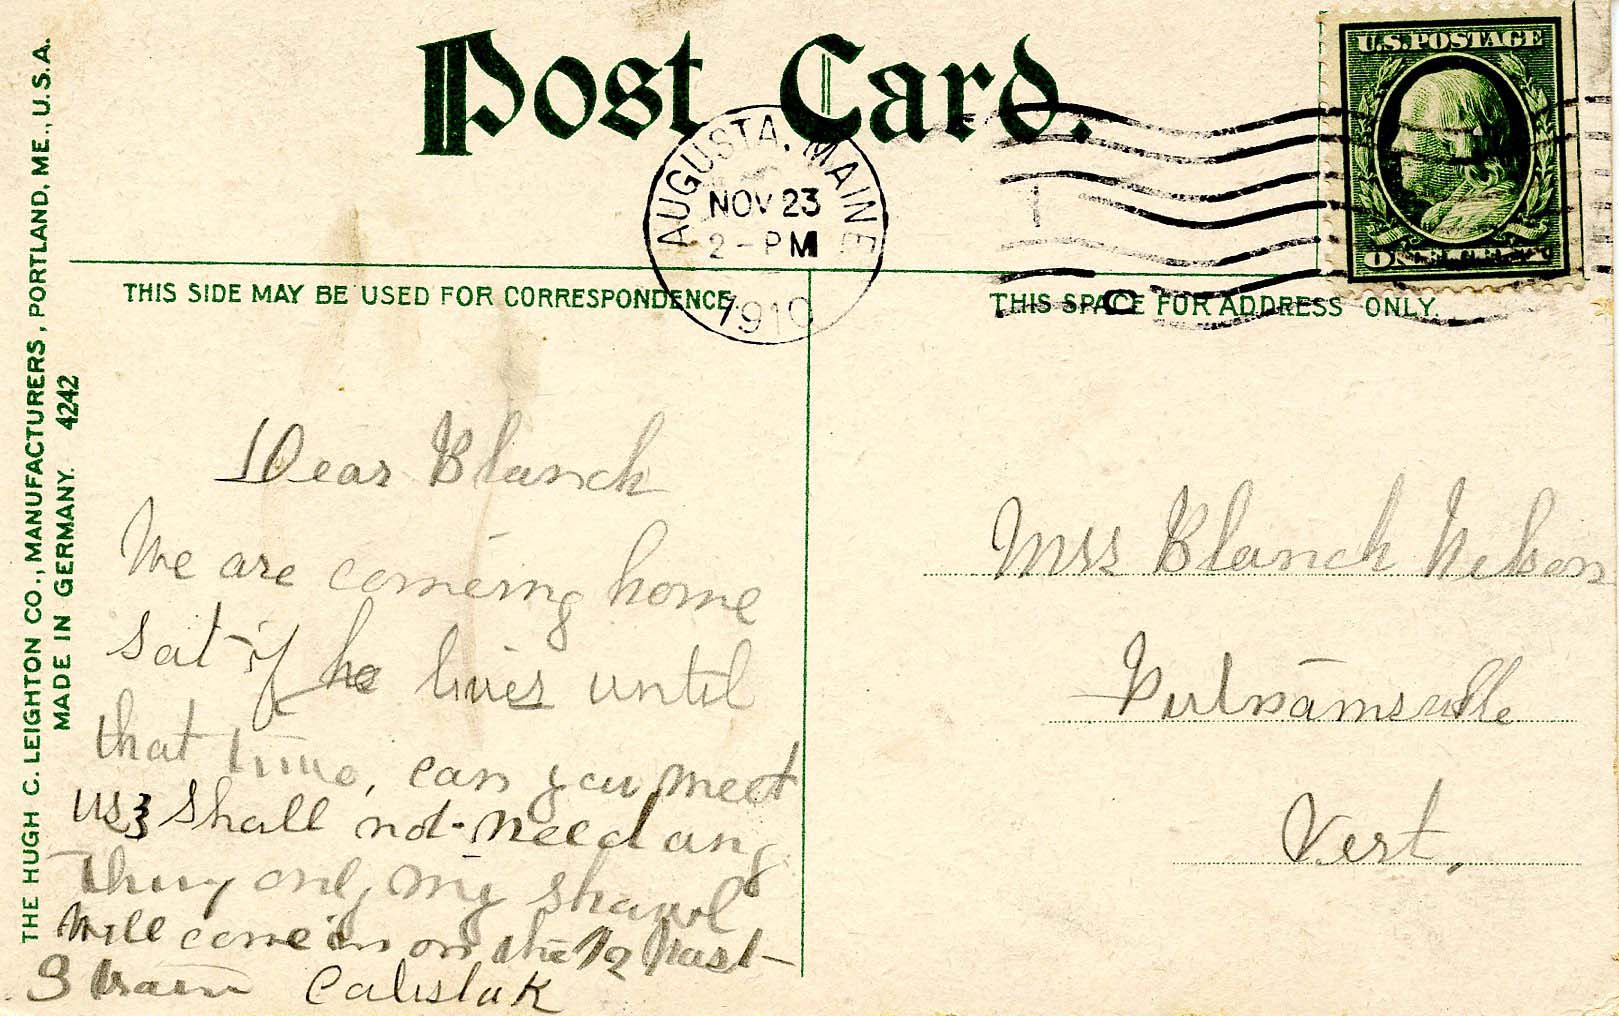 Post Card.
U.S. POSTAGE
ONE CENT
AUGUSTA, MAINE
NOV 23
2 - PM
1910
THIS SIDE MAY BE USED FOR CORRESPONDENCE
THIS SPACE FOR ADDRESS ONLY.
THE HUGH C. LEIGHTON CO., MANUFACTURERS, PORTLAND, ME., U.S.A.
MADE IN GERMANY. 4242
Dear Blanch
We are comeing home
sat if he lives until
that time, can you meet
us shall not need any
thing only my shawl
Will come in on the ½ past
3 train
Mrs Blanch Nelson
Putnamsville
Vert.